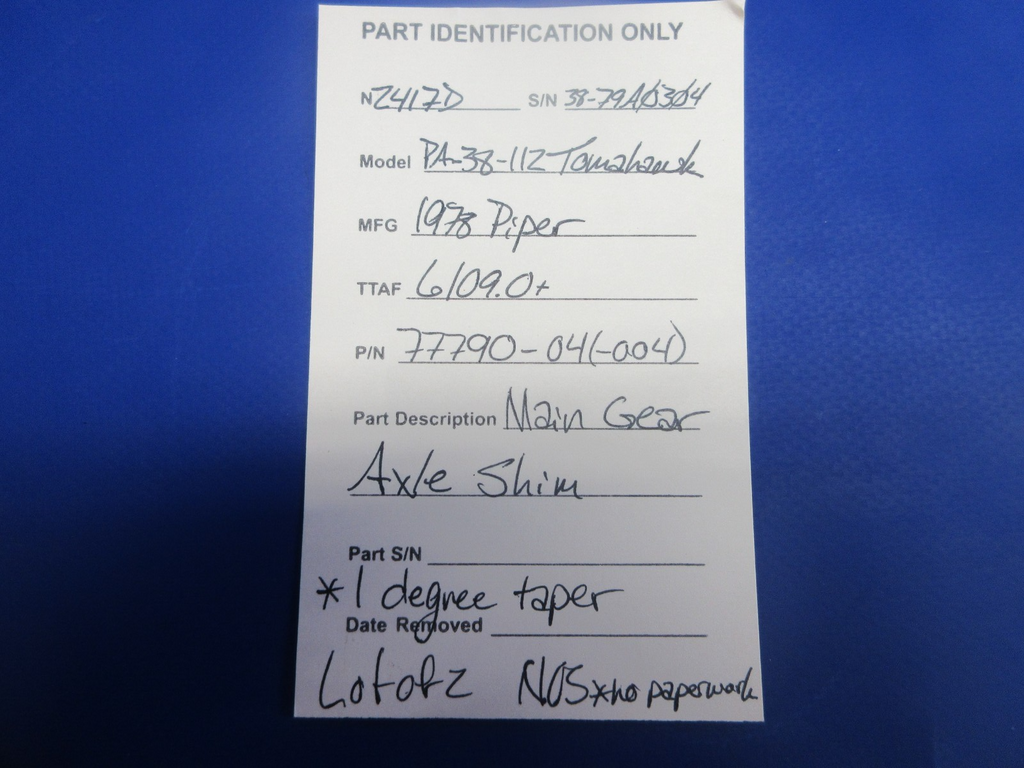 PART IDENTIFICATION ONLY
N2417D S/N 38-79A0304
Model PA-38-112 Tomahawk
MFG 1978 Piper
TTAF 6109.0+
P/N 77790-04(-004)
Part Description Main Gear
Axle Shim
Part S/N
* 1 degree taper
Date Removed
Lot of 2 NOS *no paperwork